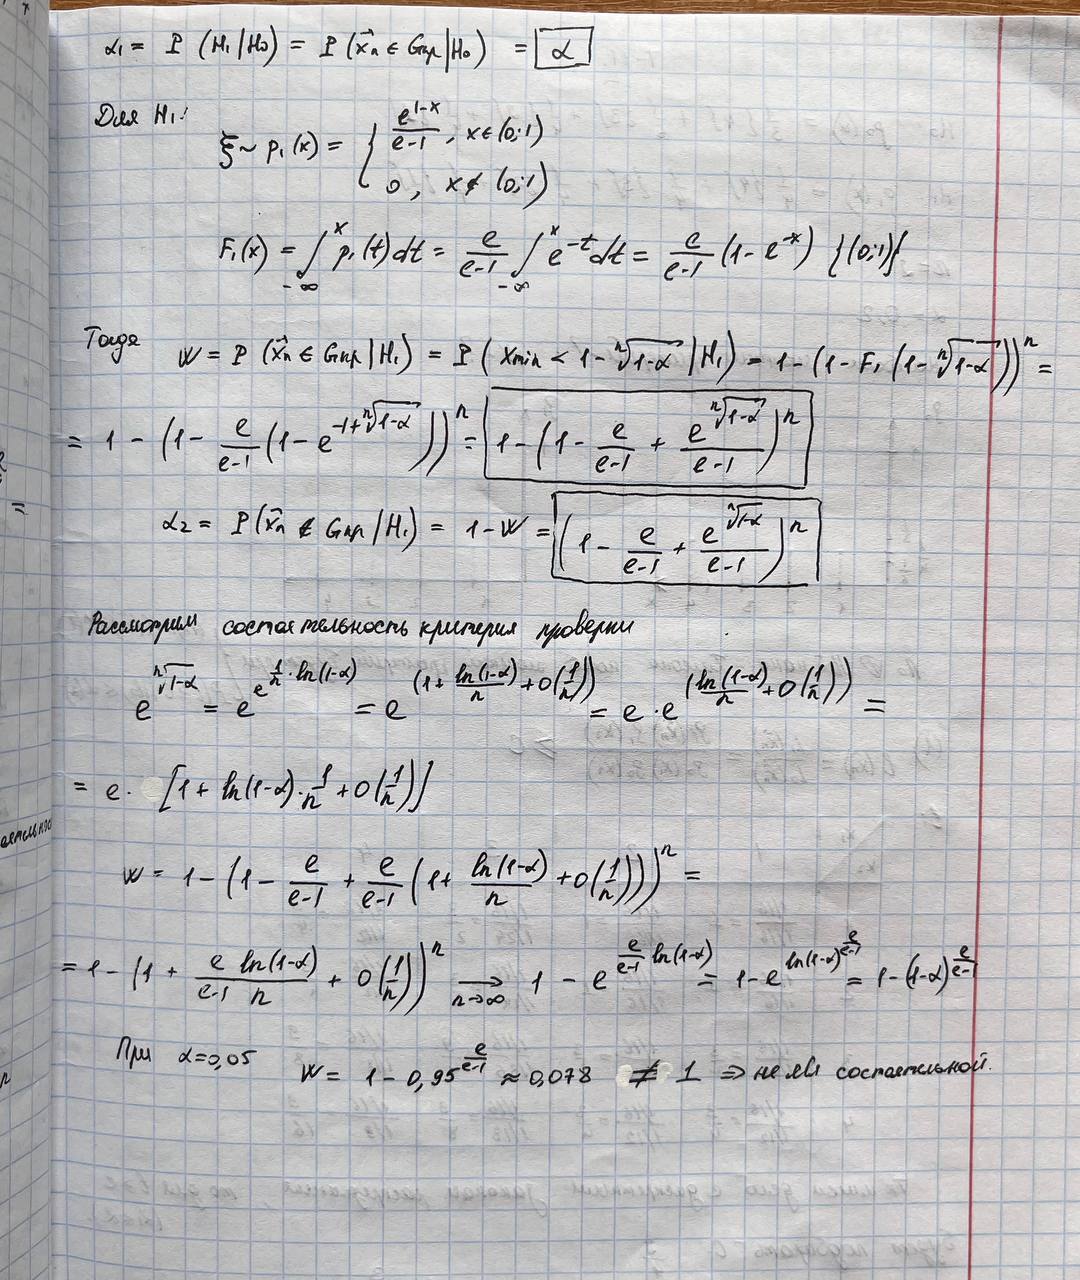 α₁ = P (H₁|H₀) = P (x⃗ₙ ∈ Gкр|H₀) = α
Для H₁:
ξ ~ p₁(x) = { e^(1-x)/(e-1), x∈(0;1)
0, x∉(0;1)
F₁(x) = ∫_{-∞}^{x} p₁(t)dt = e/(e-1) ∫_{-∞}^{x} e^(-t)dt = e/(e-1) (1-e^(-x)) {(0;1)}
Тогда W = P (x⃗ₙ ∈ Gкр|H₁) = P (Xmin < 1-ⁿ√(1-α) |H₁) = 1-(1-F₁(1-ⁿ√(1-α)))ⁿ =
= 1 - (1- e/(e-1) (1-e^(-1+ⁿ√(1-α))))ⁿ = 1-(1- e/(e-1) + e^(ⁿ√(1-α))/(e-1))ⁿ
α₂ = P(x⃗ₙ ∉ Gкр|H₁) = 1-W = (1- e/(e-1) + e^(ⁿ√(1-α))/(e-1))ⁿ
Рассмотрим состоятельность критерия проверки
e^(ⁿ√(1-α)) = e^(e^(1/n · ln(1-α))) = e^(1+ ln(1-α)/n + O(1/n)) = e·e^(ln(1-α)/n + O(1/n)) =
= e· [1+ ln(1-α)·1/n + O(1/n)]
W = 1-(1- e/(e-1) + e/(e-1) (1+ ln(1-α)/n + O(1/n)))ⁿ =
= 1-(1+ e ln(1-α)/((e-1) n) + O(1/n))ⁿ →_{n→∞} 1 - e^(e/(e-1) ln(1-α)) = 1-e^(ln(1-α)^(e/(e-1))) = 1-(1-α)^(e/(e-1))
При α=0,05 W = 1-0,95^(e/(e-1)) ≈ 0,078 ≠ 1 ⇒ не явл состоятельной.